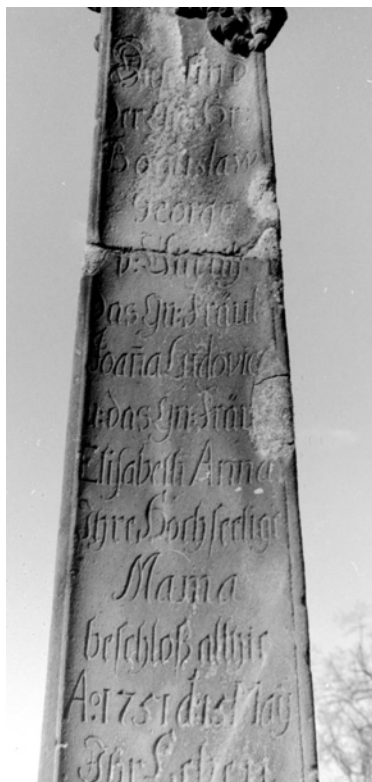 Hier sind
der Gn: Hr:
Boguslaw
George
v:
das Gn: Fräul:
Joan̄a Ludovica
u: das Gn: Fräul:
Elisabeth Anna
Ihre Hochseelige
Mama
beschloß allhir
Ao: 1751 das May
Ihr Leben